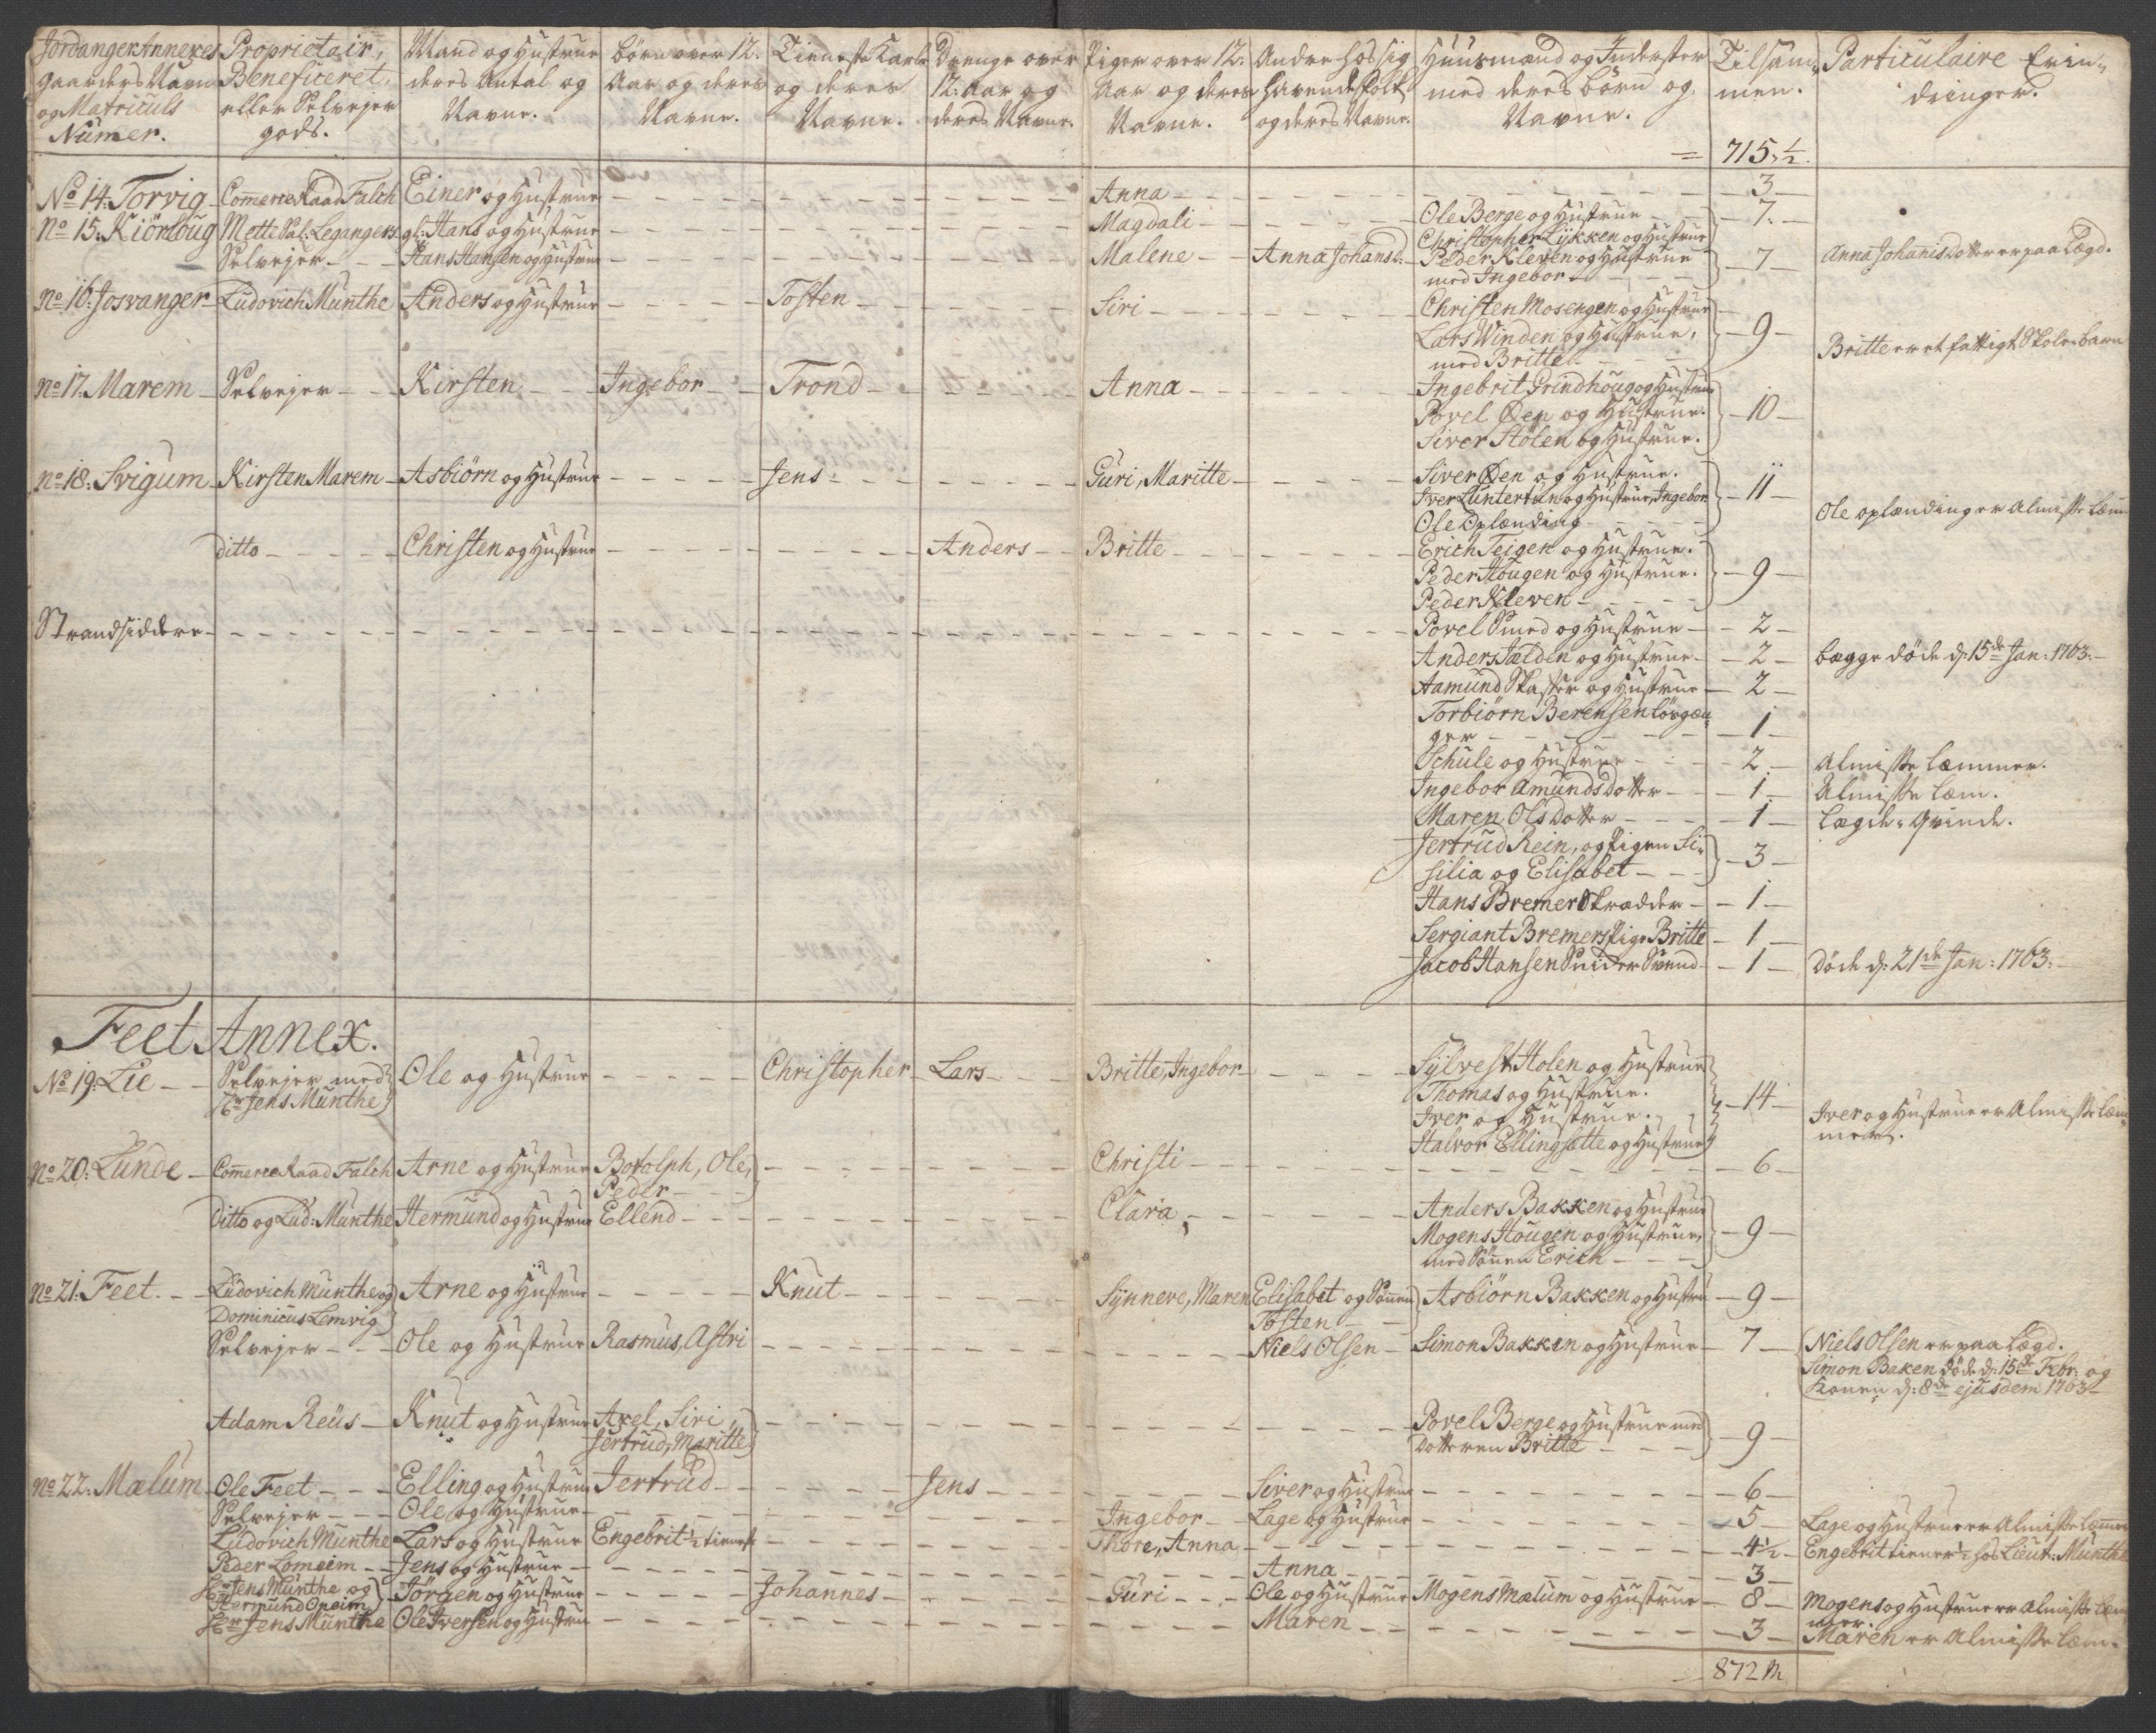 Jordanger Annexes Proprietair, Mand og Hustrue börn over 12. Tieneste Karle Drenge over Piger over 12. Andre hos sig Huusmænd og Inderster Tilsam- Particulaire Erin-
Gaarders Navn Beneficeret, deres Antal og Aar og deres og deres 12. Aar og Aar og deres havende Folk med deres börn og men. dringer.
og Matriculs eller Selvejer Navne. Navne. Navne. deres Navne. Navne. og deres Navne. Navne.
Numer. gods.
= 715 1/2.
No 14: Torvig Commerce Raad Falch Einer og Hustrue Anna 3
No 15: Kiörloug Mette Sal: Legangers gl: Hans og Hustrue Magdali Ole Berge og Hustrue 7.
Christopher Lykken og Hustrue
Selvejer Hans Hansen og Hustrue Malene Anna Johansd: Peder Kleven og Hustrue 7 Anna Johanisdotter er paa Lægd.
med Ingebor
No 16: Josvanger Ludovich Munthe Anders og Hustrue Tosten Siri Christen Mosengen og Hustrue
Lars Winden og Hustrue, 9
med Britte Britte er et fattigt Skole-barn
No 17: Marem Selvejer Kirsten Ingebor Trond Anna Ingebrit Grindhoug og Hustrue
Povel Öen og Hustrue. 10
Siver Stölen og Hustrue.
No 18: Svigum Kirsten Marem Asbiörn og Hustrue Jens Guri, Maritte Siver Öen og Hustrue.
Iver Luntertun og Hustrue, Ingebor 11
Ole Oplænding Ole oplænding er Almisse Læm
ditto Christen og Hustrue Anders Britte Erich Teigen og Hustrue.
Peder Hougen og Hustrue. 9
Peder Kleven
Strandsiddere Povel Smed og Hustrue 2
Anders Jælden og Hustrue 2 begge döde d: 15de Jan: 1763.
Aamund Skaffer og Hustrue 2
Torbiörn Berensen Lösgæn-
ger 1
Schule og Hustrue 2 Almisse Læmmer.
Ingebor Amundsdotter 1 Almisse Læm.
Maren Olsdotter 1 Lægds-Qvinde.
Jertrud Rein, og Pigen Si-
silia og Elisabet 3
Hans Bremer Skrædder 1
Sergiant Bremers Pige Britte 1
Jacob Hansen Snider Svend 1 döde d: 21de Jan: 1763.
Feet Annex.
No 19: Lie Selvejer med Ole og Hustrue Christopher Lars Britte, Ingebor Sylvest Holen og Hustrue
Hr Jens Munthe Thomas og Hustrue. 14
Iver og Hustrue. Iver og Hustrue er Almisse Læm-
Halvor Ellingsætte og Hustrue mer.
No 20: Lunde Commerce Raad Falch Arne og Hustrue Botolph, Ole, Christi 6
Peder
Ditto og Lud: Munthe Hermund og Hustrue Ellend Clara, Anders Bakken og Hustrue
Mogens Hougen og Hustrue, 9
med Sönnen Erich
No 21: Feet. Ludovich Munthe og Arne og Hustrue Knut Synneve, Maren Elisabet og Sönnen Asbiörn Bakken og Hustru 9
Dominicus Lemvig Tosten
Selvejer Ole og Hustrue Rasmus, Astri Niels Olsen Simon Bakken og Hustrue 7 Niels Olsen er paa Lægd.
Simon Baken döde d: 15de Febr: og
Konen d: 8de ejusdem 1763
Adam Reüs Knut og Hustrue Axel, Siri, Povel Berge og Hustrue med
Jertrud, Maritte dotteren Britte 9
No 22: Mælum Ole Feet Elling og Hustrue Jertrud Jens Siver og Hustrue 6
Selvejer Ole og Hustrue Ingebor Lage og Hustrue 5 Lage og Hustrue er Almisse Læmmer
Ludovich Munthe Lars og Hustrue Engebrit 1/2 tieneste Thore, Anna 4 1/2 Engebrit tiener 1/2 hos Lieut: Munthe
Peder Lomeim Jens og Hustrue Anna 3
Hr Jens Munthe og Jörgen og Hustrue Johannes Turi Ole og Hustrue Mogens Mælum og Hustrue 8 Mogens og Hustrue er Almisse Læm
Hermund Opeim mer.
Hr Jens Munthe Ole Iversen og Hustru Maren 3 Maren er Almisse Læm.
872